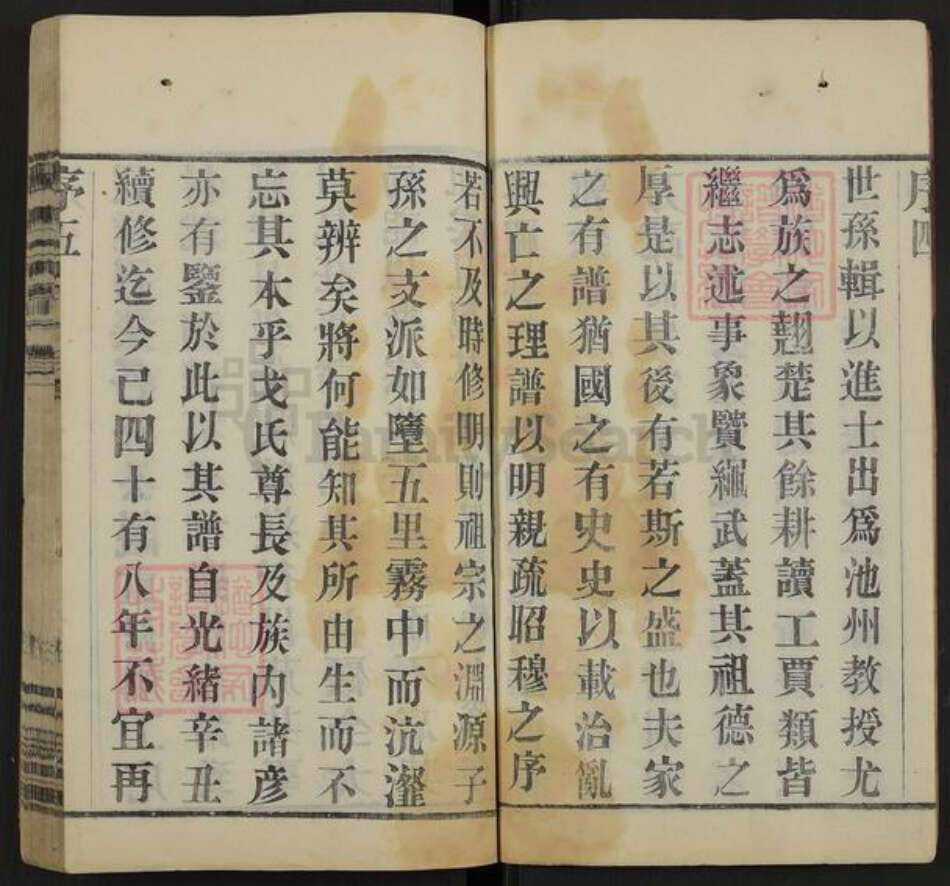 序四
世孫輯以進士出爲池州教授尤
爲族之翹楚其餘耕讀工賈類皆
繼志述事象賢繩武蓋其祖德之
厚是以其後有若斯之盛也夫家
之有譜猶國之有史史以載治亂
興亡之理譜以明親疏昭穆之序
若不及時修明則祖宗之淵源子
孫之支派如墮五里霧中而沆瀣
莫辨矣將何能知其所由生而不
忘其本乎戈氏尊長及族內諸彦
亦有鑒於此以其譜自光緒辛丑
續修迄今已四十有八年不宜再
序五
FamilySearch